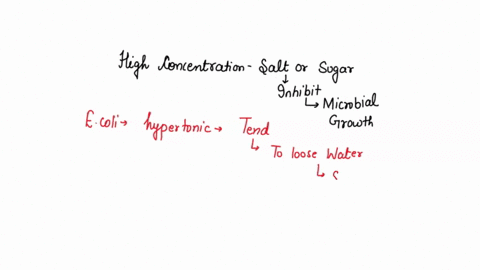 High Concentration - Salt or Sugar
↓
Inhibit
↳ Microbial
Growth
E.coli → hypertonic → Tend
↳ To loose Water
↳